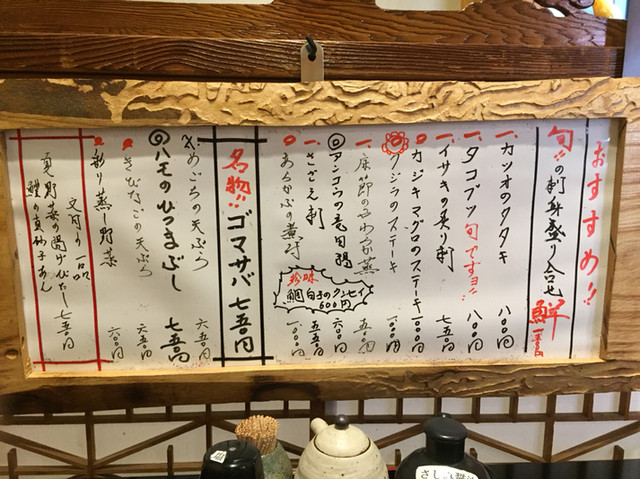 おすすめ!!
旬!!の刺身盛り合せ 鮮 一三〇〇円
一、カツオのタタキ 八〇〇円
一、タコブツ 旬ですヨ!! 八〇〇円
一、イサキの炙り刺 七五〇円
一、カジキマグロのステーキ 一〇〇〇円
クジラのステーキ 一〇〇〇円
一、 五五〇円
◎アンコウの竜田揚 六〇〇円
一、さざえ刺 五五〇円
あらかぶの煮付 一〇〇〇円
珍味
鯛白子のクンセイ
600円
名物!!ゴマサバ 七五〇円
めごちの天ぷら 六五〇円
◎ハモのひつまぶし 七五〇円
きびなごの天ぷら 六五〇円
彩り蒸し野菜 六〇〇円
文月の一品
夏野菜の揚げびたし 七五〇円
鱧の真砂子あん
さしみ醤油